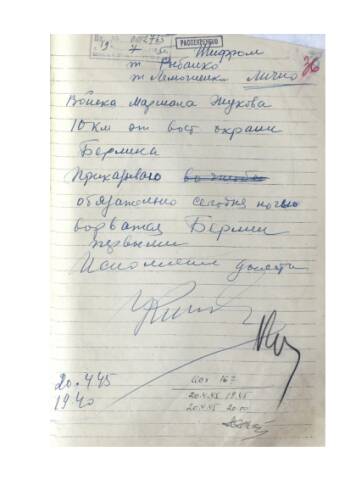 РАССЕКРЕЧЕНО
Шифром
т Рыбалко
т Лелюшенко Лично
Войска Маршала Жукова
10 км от вост окраин
Берлина
Приказываю
обязательно сегодня ночью
ворваться Берлин
первыми
Исполнение донести
20.4.45
1940
20.4.45 19.45
20.4.45 20.00